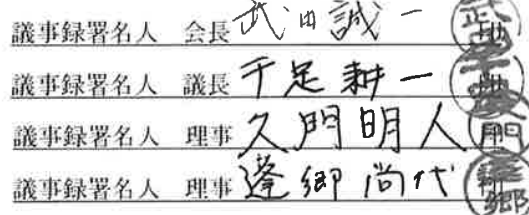 議事録署名人 会長 武田誠一
議事録署名人 議長 千足耕一
議事録署名人 理事 久門明人
議事録署名人 理事 逢郷尚代